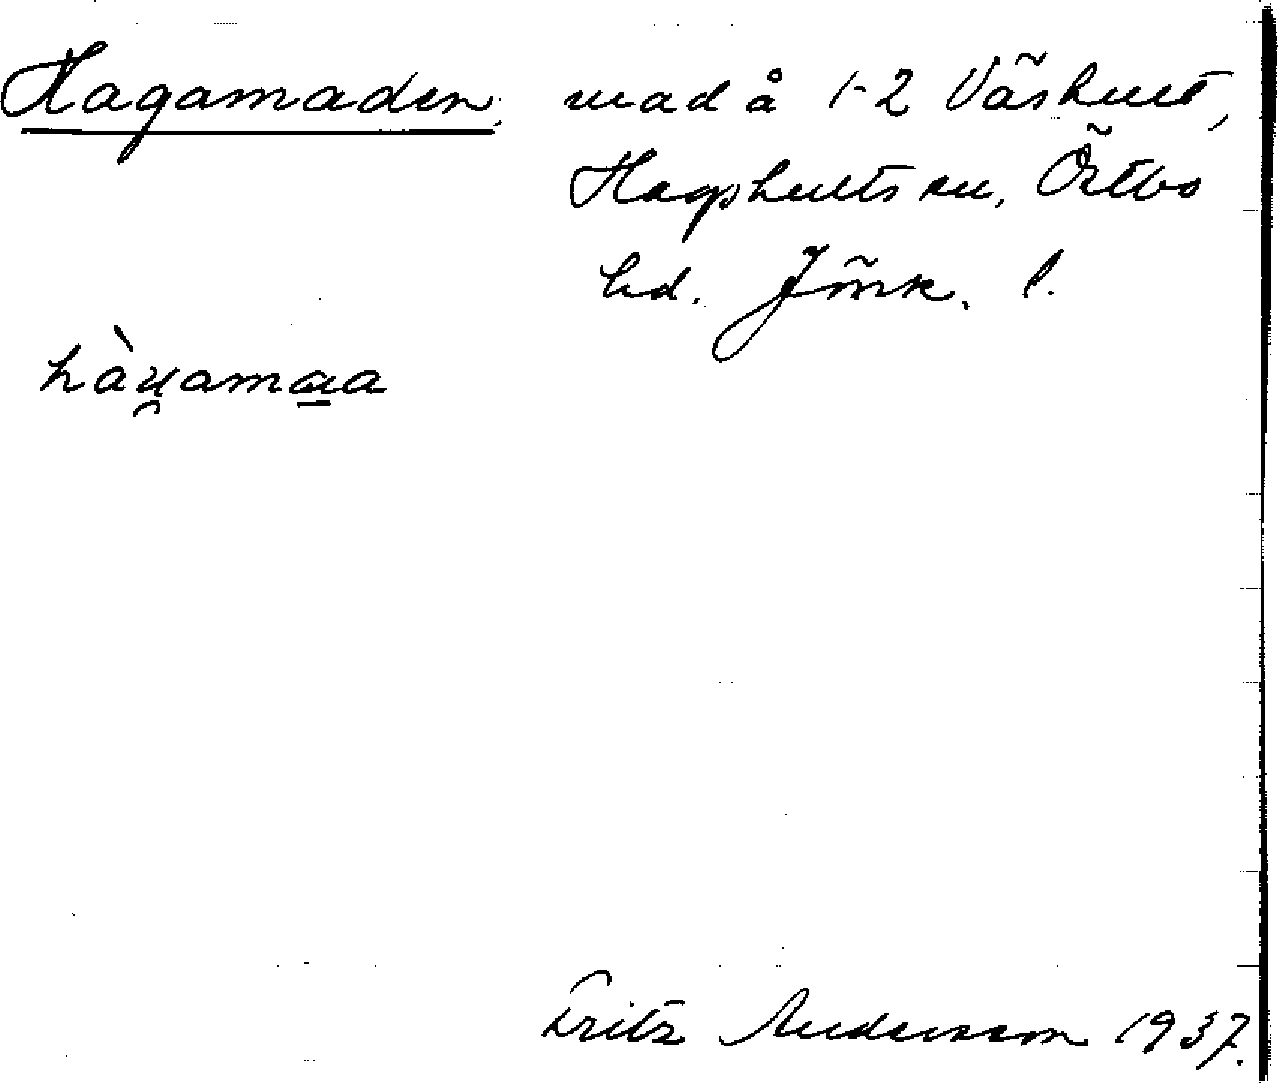 Hagamaden, mad å 1-2 Väshult,
Hagshults sn, Östbo
hd. Jönk. l.
hàu̯amaa
Fritz Andersson 1937.